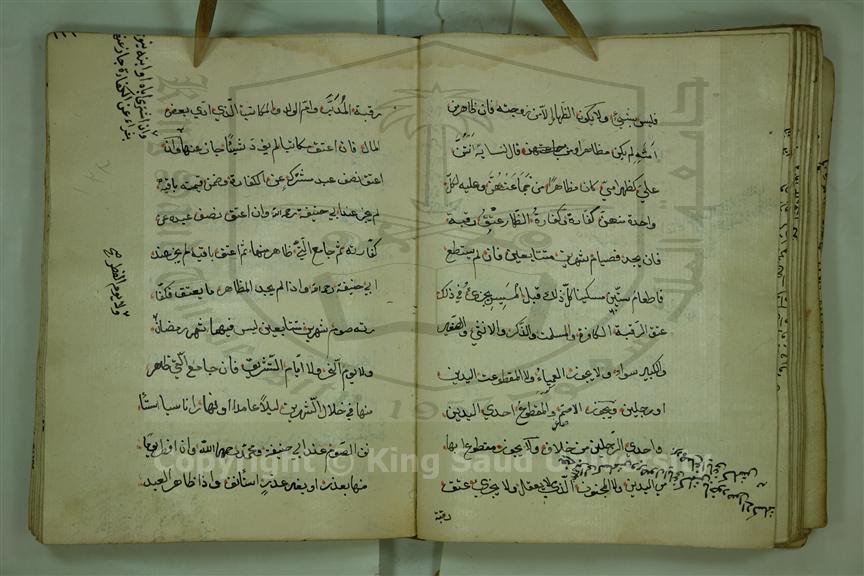 فليس بشيئ ولا يكون الظهار الا من زوجته فان ظاهر من
امته لم يكن مظاهرا ومن قال لنسائه انتن
علي كظهر امي كان مظاهرا من جميعهن وعليه لكل
واحدة منهن كفارة وكفارة الظهار عتق رقبة
فان لم يجد فصيام شهرين متتابعين فان لم يستطع
فاطعام ستين مسكينا كل ذلك قبل المسيس ويجزئ في ذلك
عتق الرقبة الكافرة والمسلمة والذكر والانثي والصغير
والكبير سواء ولا يجوز العمياء ولا المقطوعة اليدين
او الرجلين ويجوز الاصم والمقطوع احدي اليدين
واحدي الرجلين من خلاف ولا يجوز مقطوع ابها
مي اليدين ولا المجنون الذي لا يعقل ولا يجزي عتق
رقبة
رقبة المدبر وام الولد والمكاتب الذي ادي بعض
المال فان اعتق مكاتبا لم يؤد شيئا جاز عنها وان
اعتق نصف عبد مشترك عن الكفارة وضمن قيمته باقيه
لم يجز عند ابي حنيفة رحمه الله وان اعتق نصف عبده عن
كفارته ثم جامع التي ظاهر منها ثم اعتق باقيه لم يجز عند
ابي حنيفة رحمه الله واذا لم يجد المظاهر ما يعتق فكفا
رته صوم شهرين متتابعين ليس فيهما شهر رمضان
ولا يوم النحر ولا ايام التشريق فان جامع التي ظاهر
منها في خلال الشهرين ليلا عامدا او نهارا ناسيا استا
نف الصوم عند ابي حنيفة ومحمد رحمهما الله وان افطر يوما
منها بعذر او بغير عذر استأنف واذا ظاهر العبد
وان اشتري اباه او ابنه ينوي
بشراء عن الكفارة جاز عنها
ولا يوم الفطر صح
Copyright © King Saud University
1957